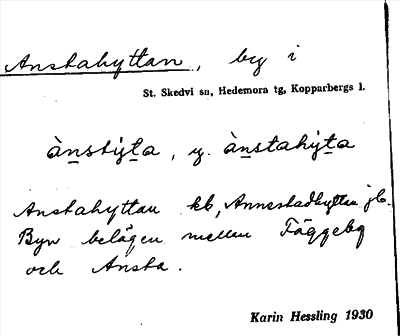 Anstahyttan, by i
St. Skedvi sn, Hedemora tg, Kopparbergs l.
ànstýta, y. ànstahýta
Anstahyttan kb, Annestadhyttan jb.
Byn belägen mellan Fäggeby
och Ansta.
Karin Hessling 1930